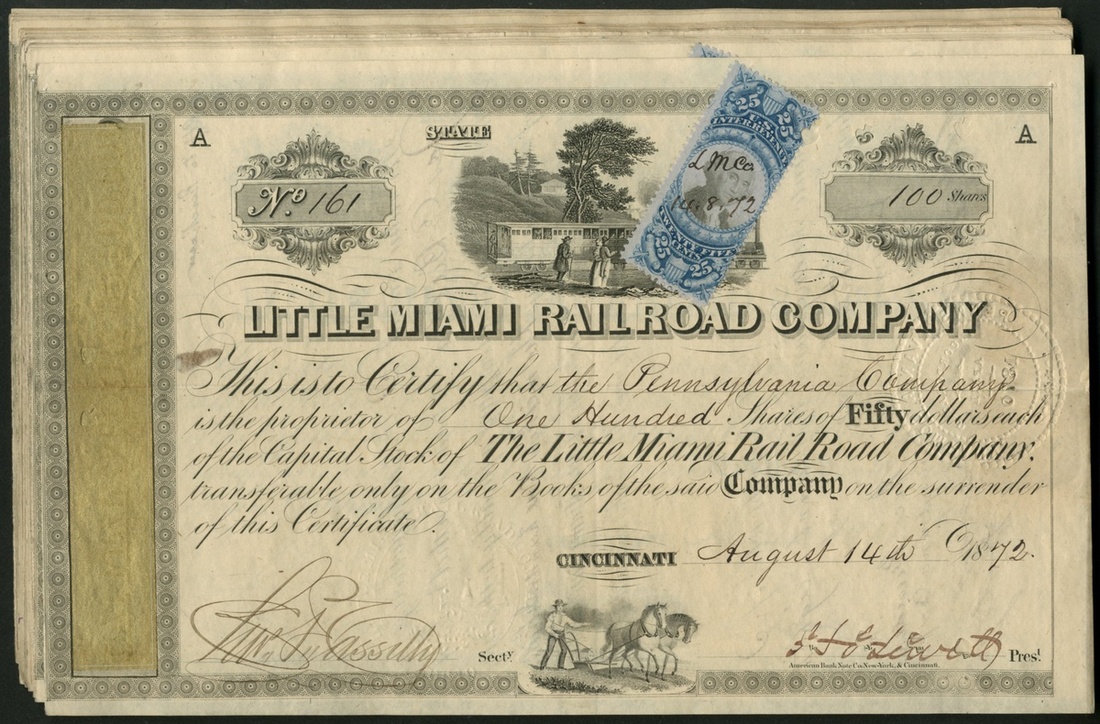 A
STATE
A
No. 161
100 Shares
25 25
U.S.
INTER. REV.
L M Co.
14.8.72
TWENTY FIVE
CENTS
25 25
LITTLE MIAMI RAIL ROAD COMPANY
This is to Certify that the Pennsylvania Company
is the proprietor of One Hundred Shares of Fifty dollars each
of the Capital Stock of The Little Miami Rail Road Company,
transferable only on the Books of the said Company on the surrender
of this Certificate.
CINCINNATI August 14th 1872.
Secty.
Prest.
American Bank Note Co. New-York, & Cincinnati.